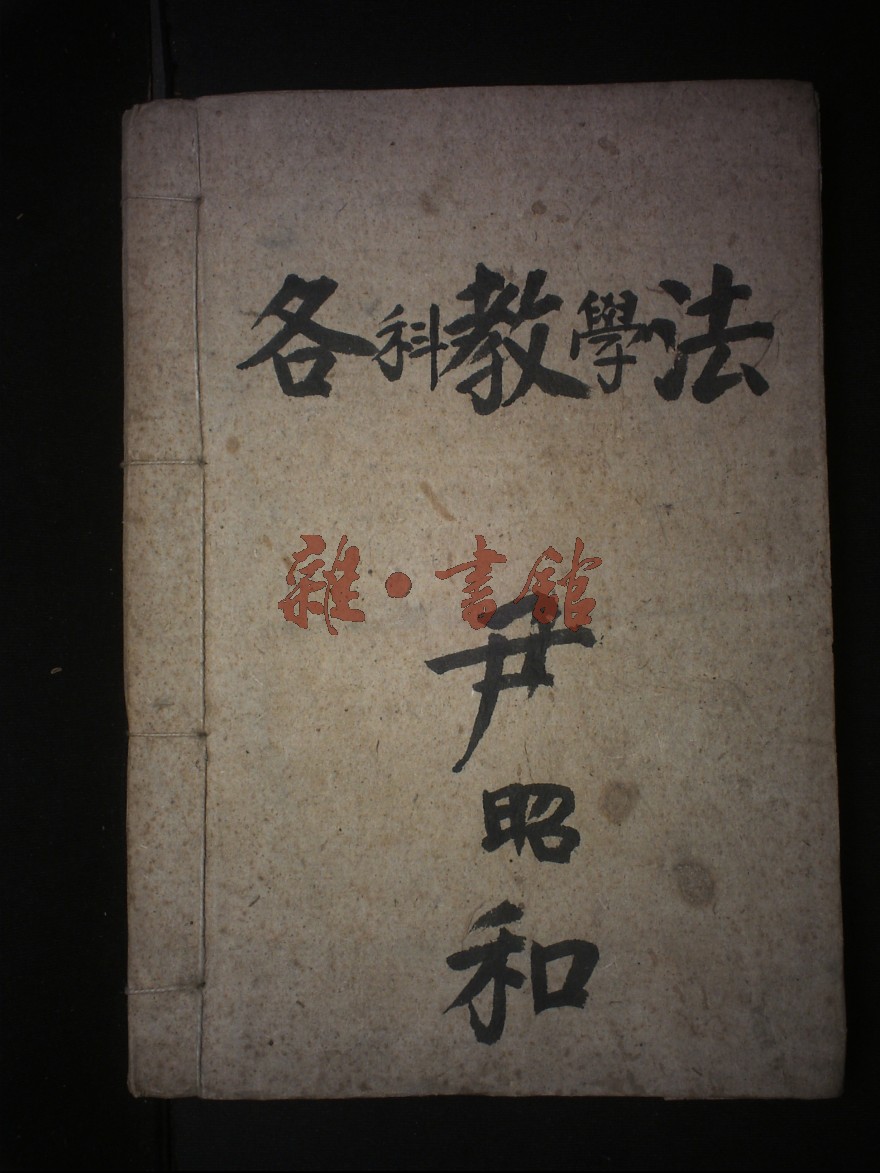 各科教學法
雜·書館
尹昭和